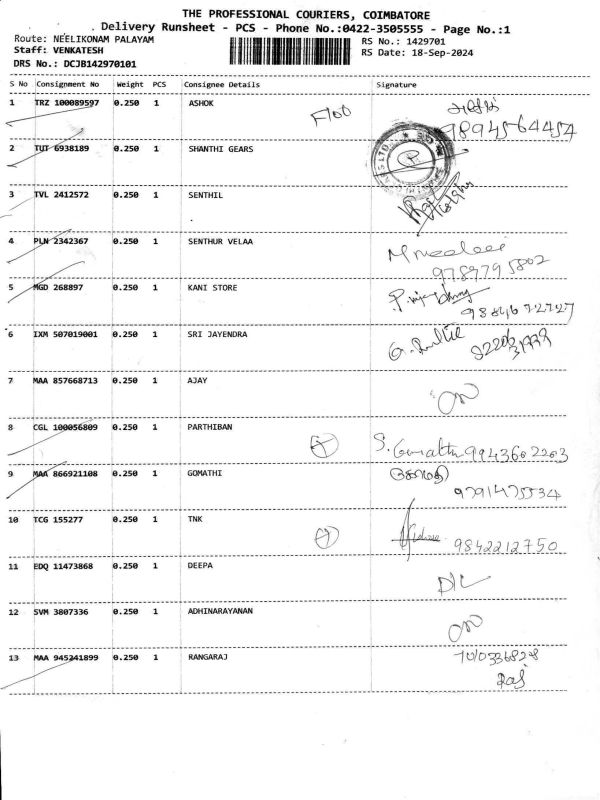 THE PROFESSIONAL COURIERS, COIMBATORE
Delivery Runsheet - PCS - Phone No.:0422-3505555 - Page No.:1
Route: NEELIKONAM PALAYAM
RS No.: 1429701
Staff: VENKATESH
RS Date: 18-Sep-2024
DRS No.: DCJB142970101
S No Consignment No Weight PCS Consignee Details Signature
1 TRZ 100089597 0.250 1 ASHOK
9894564454
2 TUT 6938189 0.250 1 SHANTHI GEARS
3 TVL 2412572 0.250 1 SENTHIL
4 PLN 2342367 0.250 1 SENTHUR VELAA
9787795802
5 MGD 268897 0.250 1 KANI STORE
6 IXM 507019001 0.250 1 SRI JAYENDRA
7 MAA 857668713 0.250 1 AJAY
8 CGL 100056809 0.250 1 PARTHIBAN
S. Gomathi 9943602203
9 MAA 866921108 0.250 1 GOMATHI
கோமதி
9791475534
10 TCG 155277 0.250 1 TNK
9842212750
11 EDQ 11473868 0.250 1 DEEPA
D/L
12 SVM 3807336 0.250 1 ADHINARAYANAN
13 MAA 945241899 0.250 1 RANGARAJ
Raj